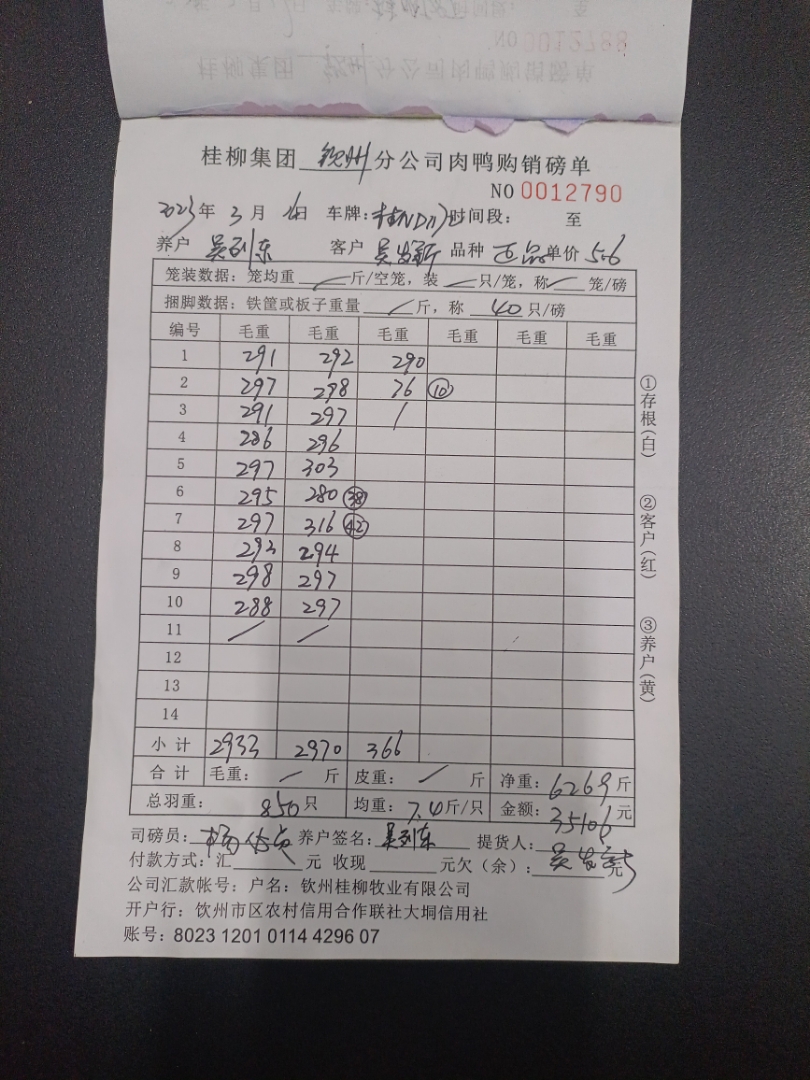 桂柳集团 钦州 分公司肉鸭购销磅单
NO 0012790
2023年 3月 日 车牌: 时间段: 至
养户 吴列东 客户 品种 单价 5.6
笼装数据:笼均重 / 斤/空笼,装 / 只/笼,称 / 笼/磅
捆脚数据:铁筐或板子重量 / 斤,称 40 只/磅
编号 毛重 毛重 毛重 毛重 毛重 毛重
1 291 292 290
2 297 298 76 ⑩
3 291 297 /
4 286 296
5 297 303
6 295 280 ㊳
7 297 316 ㊷
8 293 294
9 298 297
10 288 297
11 / /
12
13
14
小计 2933 2970 366
合计 毛重: / 斤 皮重: / 斤 净重: 6269 斤
总羽重: 850 只 均重: 7.4 斤/只 金额: 35106 元
司磅员: 养户签名: 吴列东 提货人:
付款方式:汇 元 收现 元欠(余): 元
公司汇款帐号:户名:钦州桂柳牧业有限公司
开户行:钦州市区农村信用合作联社大垌信用社
账号:8023 1201 0114 4296 07
①存根(白)
②客户(红)
③养户(黄)